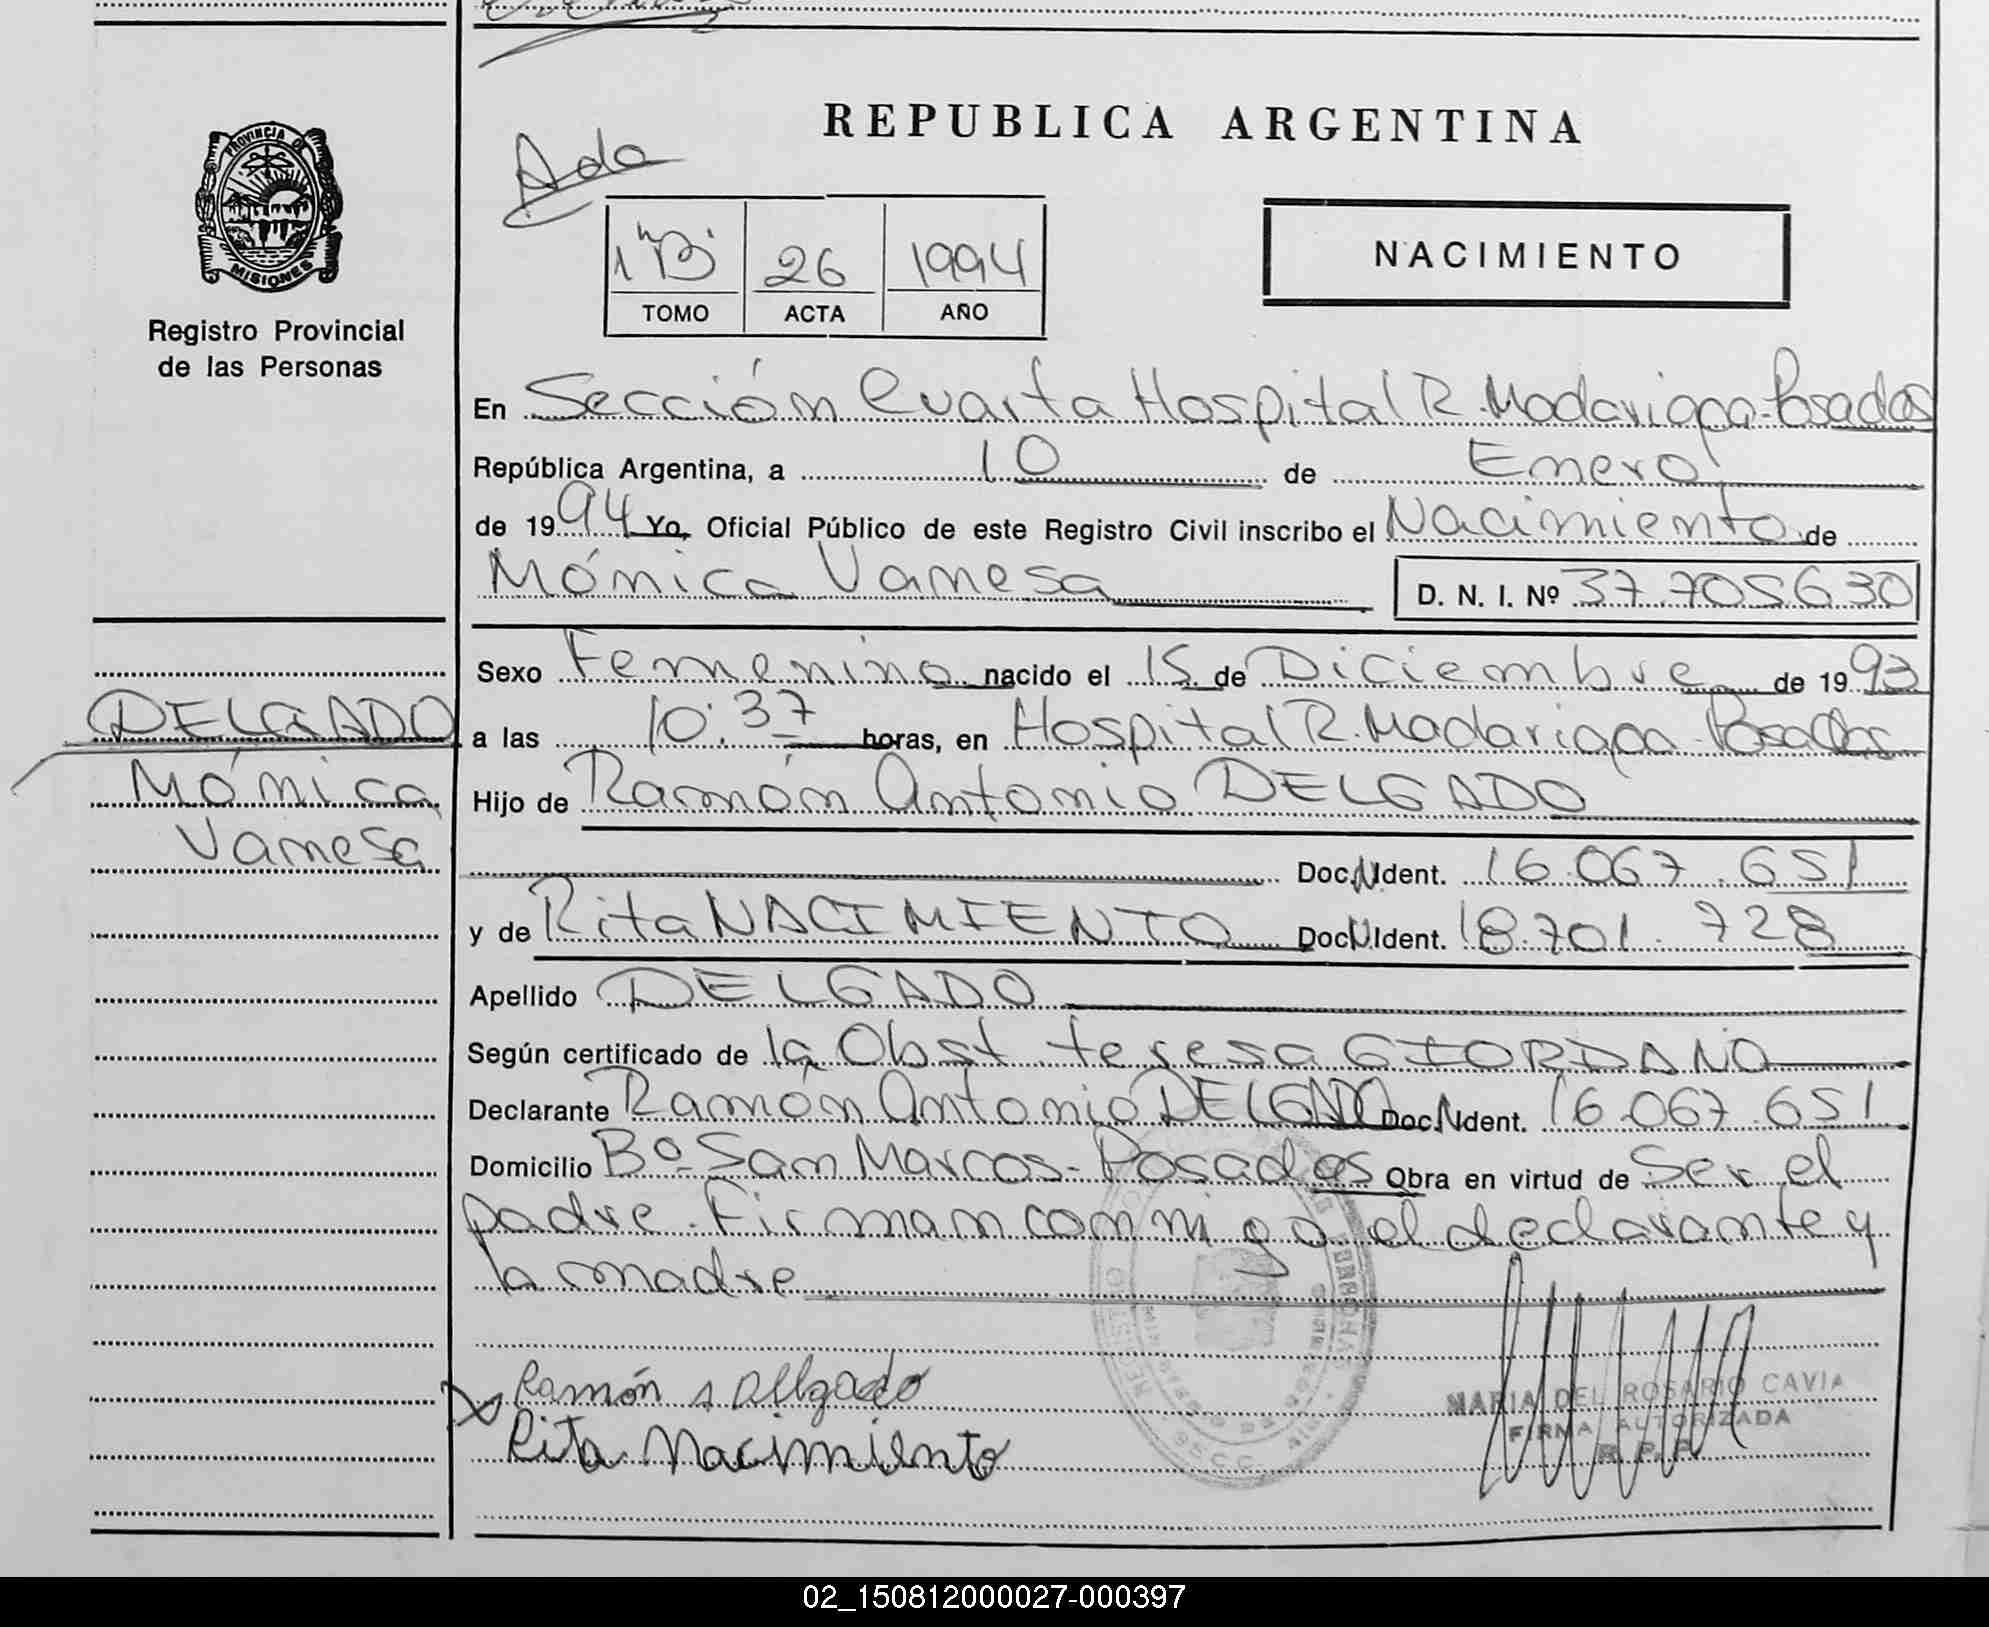 REPUBLICA ARGENTINA
Ada
PROVINCIA DE
MISIONES
Registro Provincial
de las Personas
26 1994
TOMO ACTA AÑO
NACIMIENTO
En Sección Cuarta Hospital R. Madariaga-Posadas
República Argentina, a 10 de Enero
de 1994 Yo, Oficial Público de este Registro Civil inscribo el Nacimiento de
Mónica Vanesa D. N. I. Nº 37.705630
Sexo Femenino nacido el 15 de Diciembre de 1993
DELGADO
Mónica
Vanesa
a las 10:37 horas, en Hospital R. Madariaga-Posadas
Hijo de Ramón Antonio DELGADO
Doc.N.Ident. 16.067.651
y de Rita NACIMIENTO Doc.N.Ident. 18.701.728
Apellido DELGADO
Según certificado de la Obst Teresa GIORDANO
Declarante Ramón Antonio DELGADO Doc.N.Ident. 16.067.651
Domicilio Bº San Marcos-Posadas Obra en virtud de Ser el
padre. Firman conmigo el declarante y
la madre
Ramón A Delgado
Rita Nacimiento
MARIA DEL ROSARIO CAVIA
FIRMA AUTORIZADA
R. P. P.
02_150812000027-000397